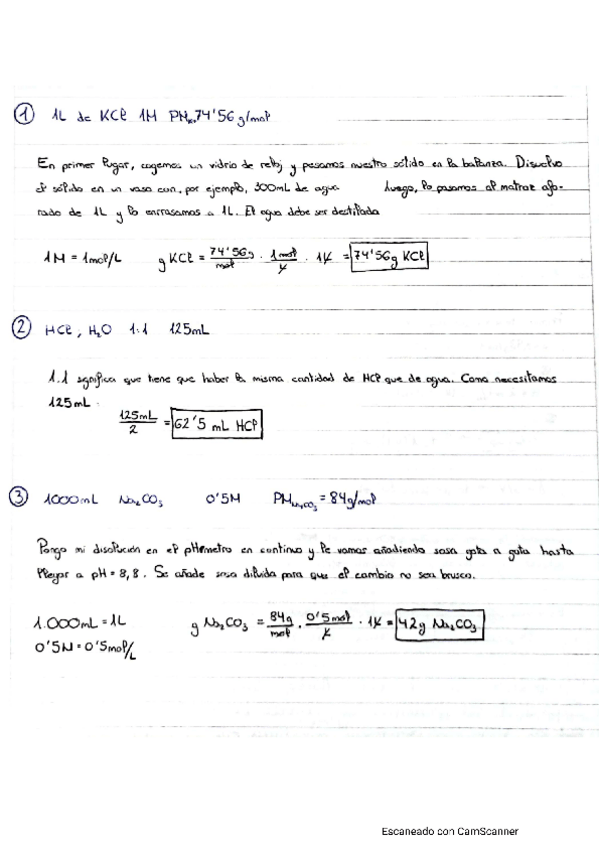 ① 1L de KCl 1M PMₖ 74'56 g/mol
En primer lugar, cogemos un vidrio de reloj y pesamos nuestro sólido en la balanza. Disuelvo
el sólido en un vaso con, por ejemplo, 300mL de agua luego, lo pasamos al matraz afo-
rado de 1L y lo enrrasamos a 1L. El agua debe ser destilada
1M = 1mol/L g KCl = 74'56g/mol · 1mol/L · 1L = 74'56g KCl
② HCl, H₂O 1:1 125mL
1:1 significa que tiene que haber la misma cantidad de HCl que de agua. Como necesitamos
125mL:
125mL/2 = 62'5 mL HCl
③ 1000mL Na₂CO₃ 0'5M PM Na₂CO₃ = 84g/mol
Pongo mi disolución en el pHmetro en continuo y le vamos añadiendo sosa gota a gota hasta
llegar a pH = 8,8. Se añade sosa diluida para que el cambio no sea brusco.
1.000mL = 1L g Na₂CO₃ = 84g/mol · 0'5mol/L · 1L = 42g Na₂CO₃
0'5M = 0'5mol/L
Escaneado con CamScanner